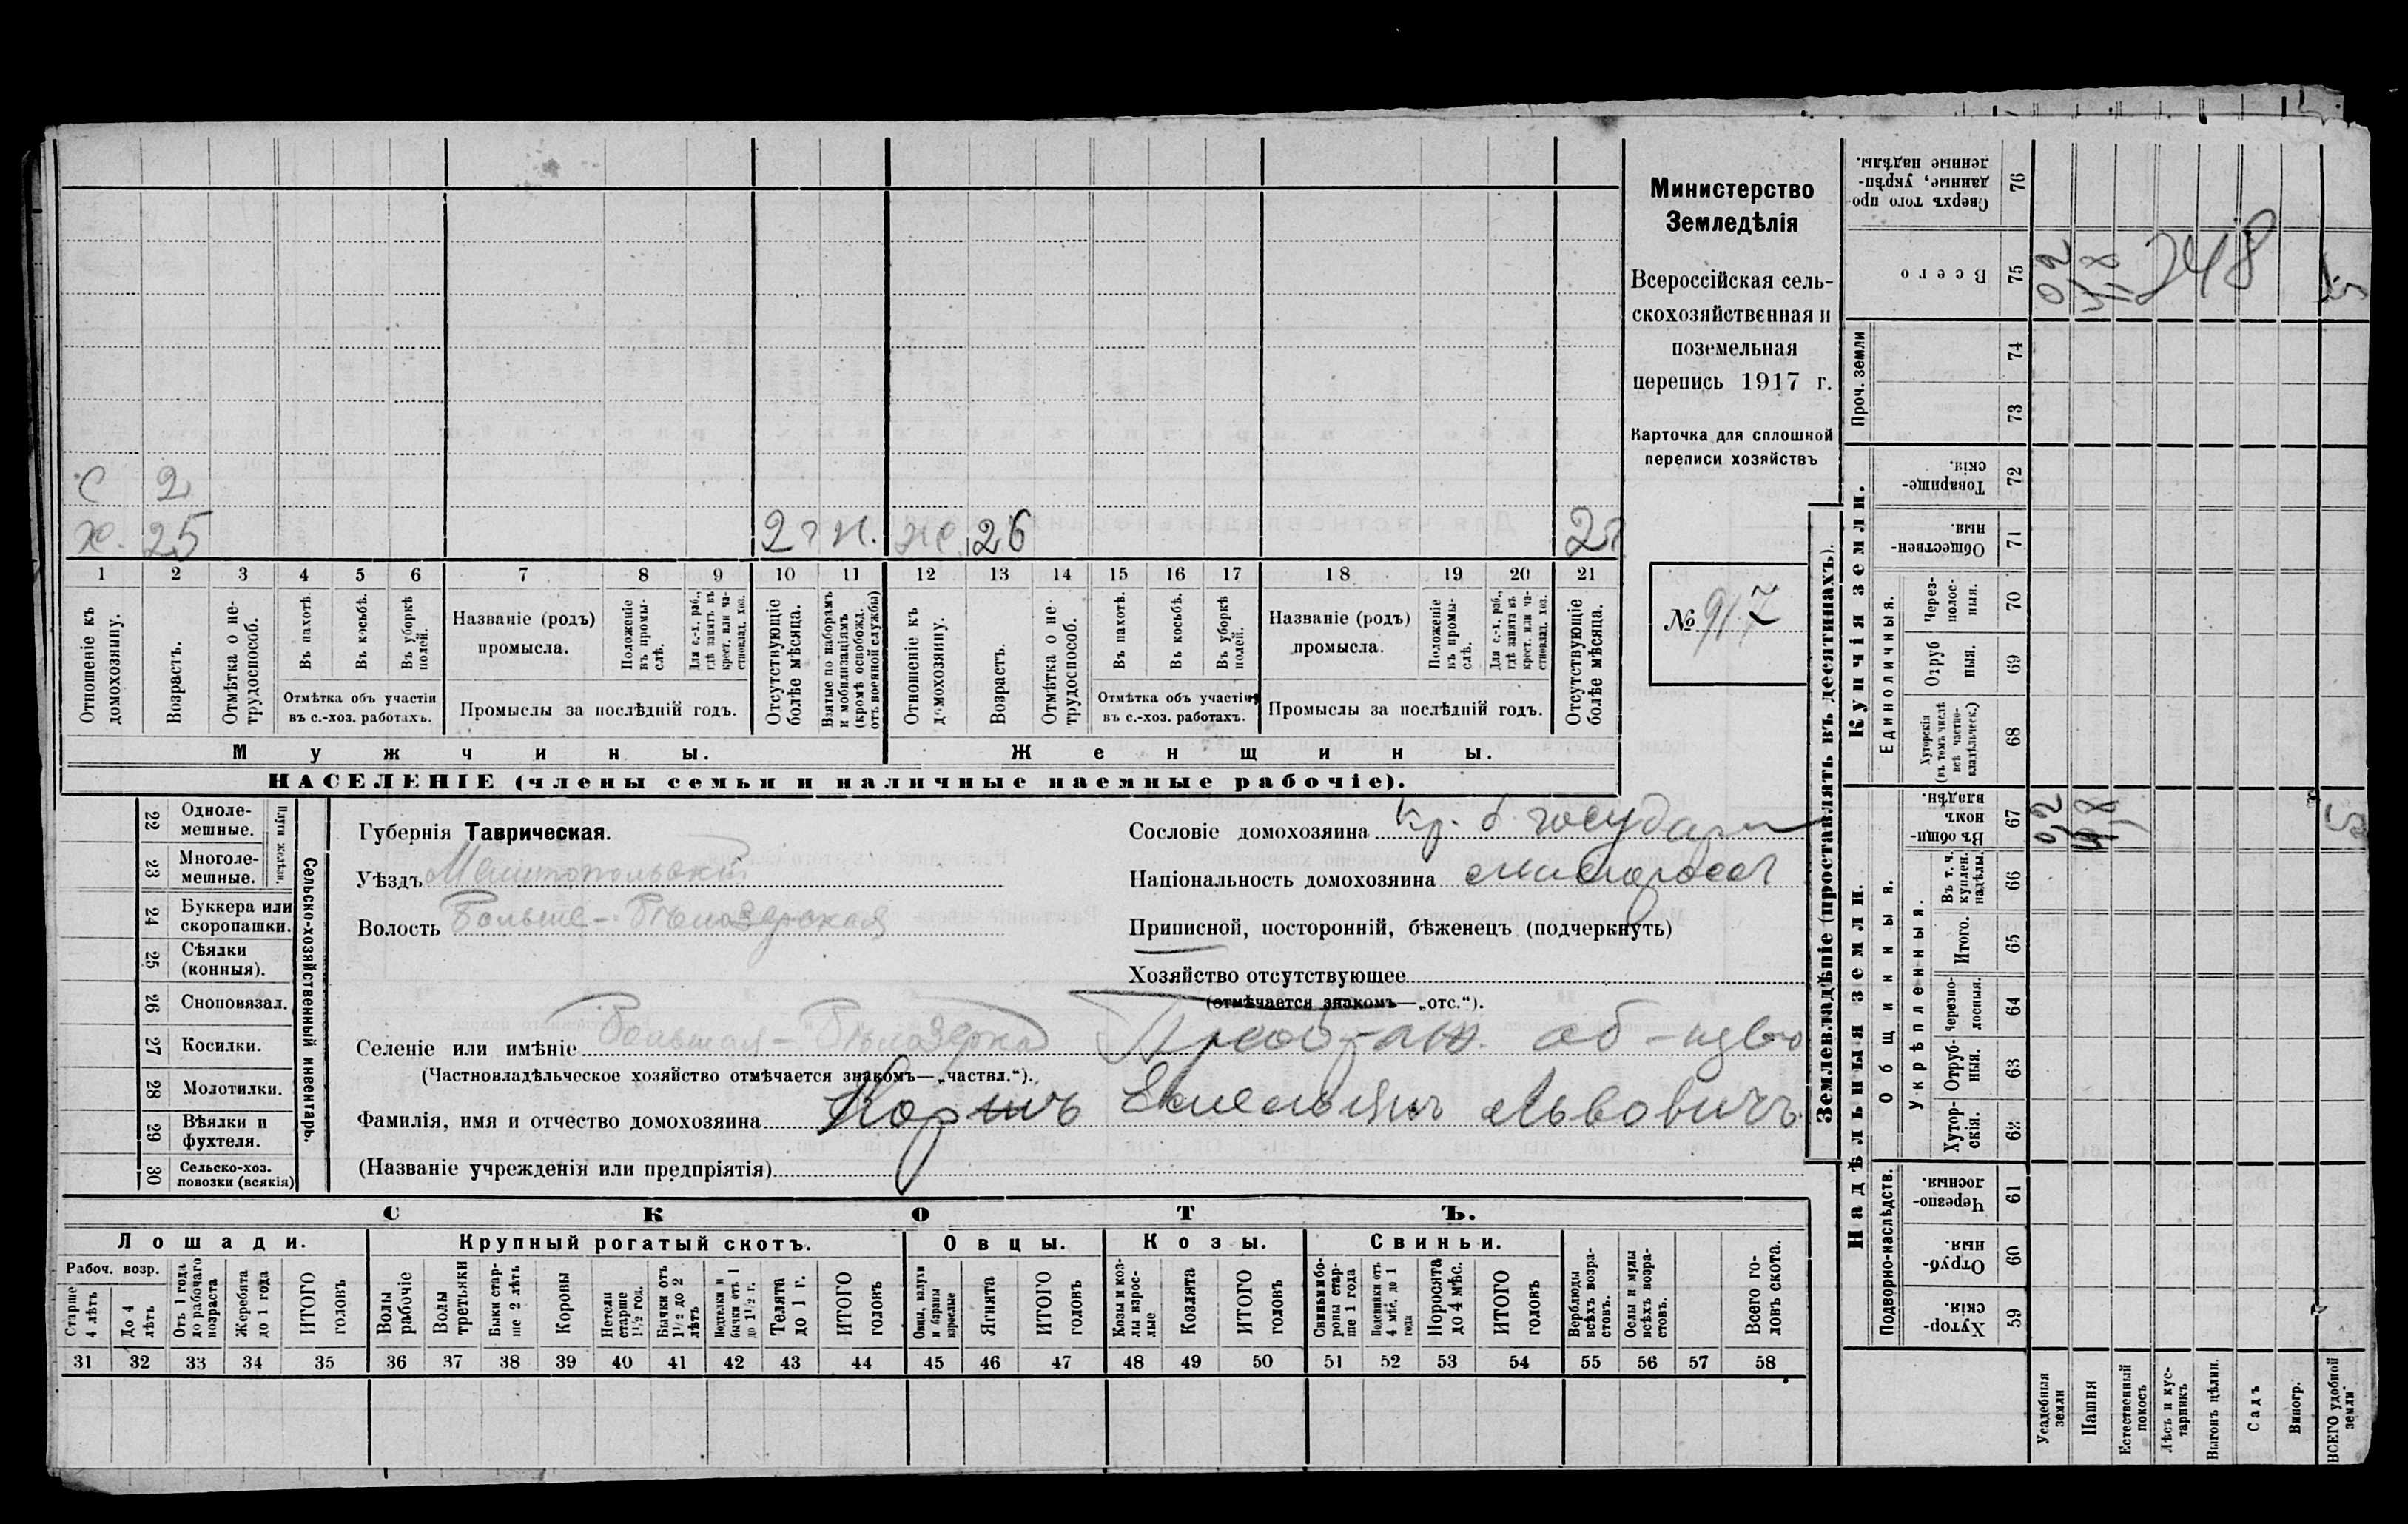 Министерство
Земледѣлія
Всероссійская сель-
скохозяйственная и
поземельная
перепись 1917 г.
Карточка для сплошной
переписи хозяйствъ
№ 917
С 2
Х. 25 2 г Н. Ж. 26 2 г.
1 2 3 4 5 6 7 8 9 10 11 12 13 14 15 16 17 18 19 20 21
Отношеніе къ домохозяину.
Возрастъ.
Отмѣтка о не-трудоспособ.
Въ пахотѣ.
Въ косьбѣ.
Въ уборкѣ полей.
Отмѣтка объ участіи
въ с.-хоз. работахъ.
Названіе (родъ)
промысла.
Положеніе въ промы-слѣ.
Для с.-х. раб., гдѣ занятъ въ крест. или ча-стновлад. хоз.
Промыслы за послѣдній годъ.
Отсутствующіе болѣе мѣсяца.
Взятые по наборамъ и мобилизаціямъ (кромѣ освобожд. отъ военной службы)
Отношеніе къ домохозяину.
Возрастъ.
Отмѣтка о не-трудоспособ.
Въ пахотѣ.
Въ косьбѣ.
Въ уборкѣ полей.
Отмѣтка объ участіи
въ с.-хоз. работахъ.
Названіе (родъ)
промысла.
Положеніе въ промы-слѣ.
Для с.-х. раб., гдѣ занята въ крест. или ча-стновлад. хоз.
Промыслы за послѣдній годъ.
Отсутствующіе болѣе мѣсяца.
Мужчины. Женщины.
НАСЕЛЕНІЕ (члены семьи и наличные наемные рабочіе).
22 Одноле-мешные.
23 Многоле-мешные.
Плуги желѣзн.
24 Буккера или скоропашки.
25 Сѣялки (конныя).
26 Сноповязал.
27 Косилки.
28 Молотилки.
29 Вѣялки и фухтеля.
30 Сельско-хоз. повозки (всякія)
Сельско-хозяйственный инвентарь.
Губернія Таврическая.
Уѣздъ Мелитопольскій
Волость Больше-Бѣлозерская
Сословіе домохозяина кр. б. государ
Національность домохозяина малоросс
Приписной, посторонній, бѣженецъ (подчеркнуть)
Хозяйство отсутствующее
(отмѣчается знакомъ—„отс.“).
Селеніе или имѣніе Большая-Бѣлозерка об-щво
(Частновладѣльческое хозяйство отмѣчается знакомъ—„частвл.“).
Фамилія, имя и отчество домохозяина Емельянъ Львовичъ
(Названіе учрежденія или предпріятія)
СКОТЪ.
Лошади. Крупный рогатый скотъ. Овцы. Козы. Свиньи.
Рабоч. возр.
Старше 4 лѣтъ
До 4 лѣтъ
Отъ 1 года до рабочаго возраста
Жеребята до 1 года
ИТОГО головъ
Волы рабочіе
Волы третьяки
Быки стар-ше 2 лѣтъ
Коровы
Нетели старше 1½ год.
Бычки отъ 1½ до 2 лѣтъ
Подтелки и бычки отъ 1 до 1½ г.
Телята до 1 г.
ИТОГО головъ
Овцы, валухи и бараны взрослые
Ягнята
ИТОГО головъ
Козы и коз-лы взрос-лые
Козлята
ИТОГО головъ
Свиньи и бо-роны стар-ше 1 года
Подсвинки отъ 4 мѣс. до 1 года
Поросята до 4 мѣс.
ИТОГО головъ
Верблюды всѣхъ возра-стовъ.
Ослы и мулы всѣхъ возра-стовъ.
Всего го-ловъ скота.
31 32 33 34 35 36 37 38 39 40 41 42 43 44 45 46 47 48 49 50 51 52 53 54 55 56 57 58
Землевладѣніе (проставлять въ десятинахъ).
Надѣльныя земли. Купчія земли.
Подворно-наслѣдств.
Общинныя.
Укрѣпленныя.
Единоличныя.
Проч. земли
Хутор-скія. 59
Отруб-ныя. 60
Черезпо-лосныя. 61
Хутор-скія. 62
Отруб-ныя. 63
Черезпо-лосныя. 64
Итого. 65
Въ т. ч. куплен. надѣлы. 66
Въ общи-номъ владѣн. 67 02 48 5
Хуторскія (въ томъ числѣ всѣ частно-владѣльческ.) 68
Отруб ныя. 69
Через-полос-ныя. 70
Обществен-ныя. 71
Товарище-скія. 72
73
74
Всего 75 02 48 248 5
Сверхъ того про-данные, укрѣп-ленные надѣлы. 76
Усадебныя земли
Пашня
Естественный покосъ
Лѣсъ и кус-тарникъ
Выгонъ цѣлин.
Садъ
Виногр.
ВСЕГО удобной земли